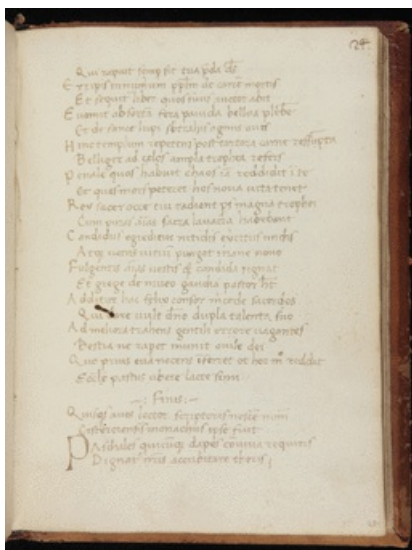 24
Qui rapuit semp fit tua pda ds
Eripis innumerum pplm de carcere mortis
Et sequit liber quo suus auctor abit
Evomit absorta fera pavida bellua plebe
Et de fauce lupi subtrahis agnus oves
Hinc tumulum repetens post tartara carne resupta
Belliger ad celos ampla trophea refers
Penale quos habuit chaos reddidit i te
Et quos mors peteret hos nova vita tenet
Rex sacer ecce tui radient ps magna trophei
Cum puras aias sacra lavacra
Candidus egreditur nitidis exercitus undis
Atq vetus vitiu purgat in ane novo
Fulgentes aias vestis q candida signat
Et grege de niveo gaudia pastor ht
Additur hac felix consors mcede sacerdos
Qui dare vult dno dupla talenta suo
Ad meliora trahens gentili errore vagantes
Bestia ne rapet munit ovile dei
Que prius eva nocens hoc reddit
Ecclie pastos ubere lacte sinu
—: Finis:—
Quisqs aves lector scriptoris nosce nom
Cisterciensis monachus ipse fuit
Paschales quicuq dapes coviva requiris
Dignat nris accubitare thoris